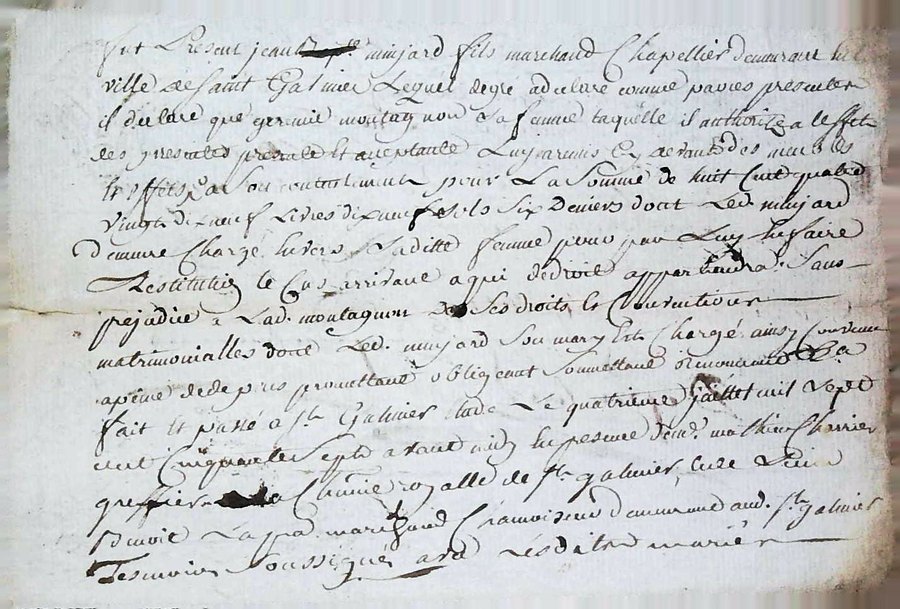 fut Présent jean minjard fils marchand Chapellier demurant
ville de saint Galmier Lequel de gre a declare comme par ces presentes
il declare que germie montagnon sa femme laquelle il authorize a leffet
des presentes presente et aceptante Luy a remis cy devant des meubles
et effets a son contentement pour La Somme de huit Cent quatre
vingt dix neuf Livres dix neuf sols six deniers dont Led. minjard
demure Chargé envers Saditte femme pour par Luy en faire
Restitution le Cas arrivant a qui de droit appartiendra. Sans
prejudice a Lad. montagnon de Ses droits et Conventions
matrimonialles dont Led. minjard Son mary Est Chargé ainsy Convenu
a peine de depens promettant obligeant Soumettant Renonceant
fait et passé a St Galmier Etude Le quatrieme juillet mil Sept
cent Cinquante Sept avant midy En presence de me. mathieu Charrier
greffier Chatnie royalle de St galmier
Benoit marchand Chamoiseur demurant aud. St galmier
Tesmoins Soussignés avec Lesdits mariés